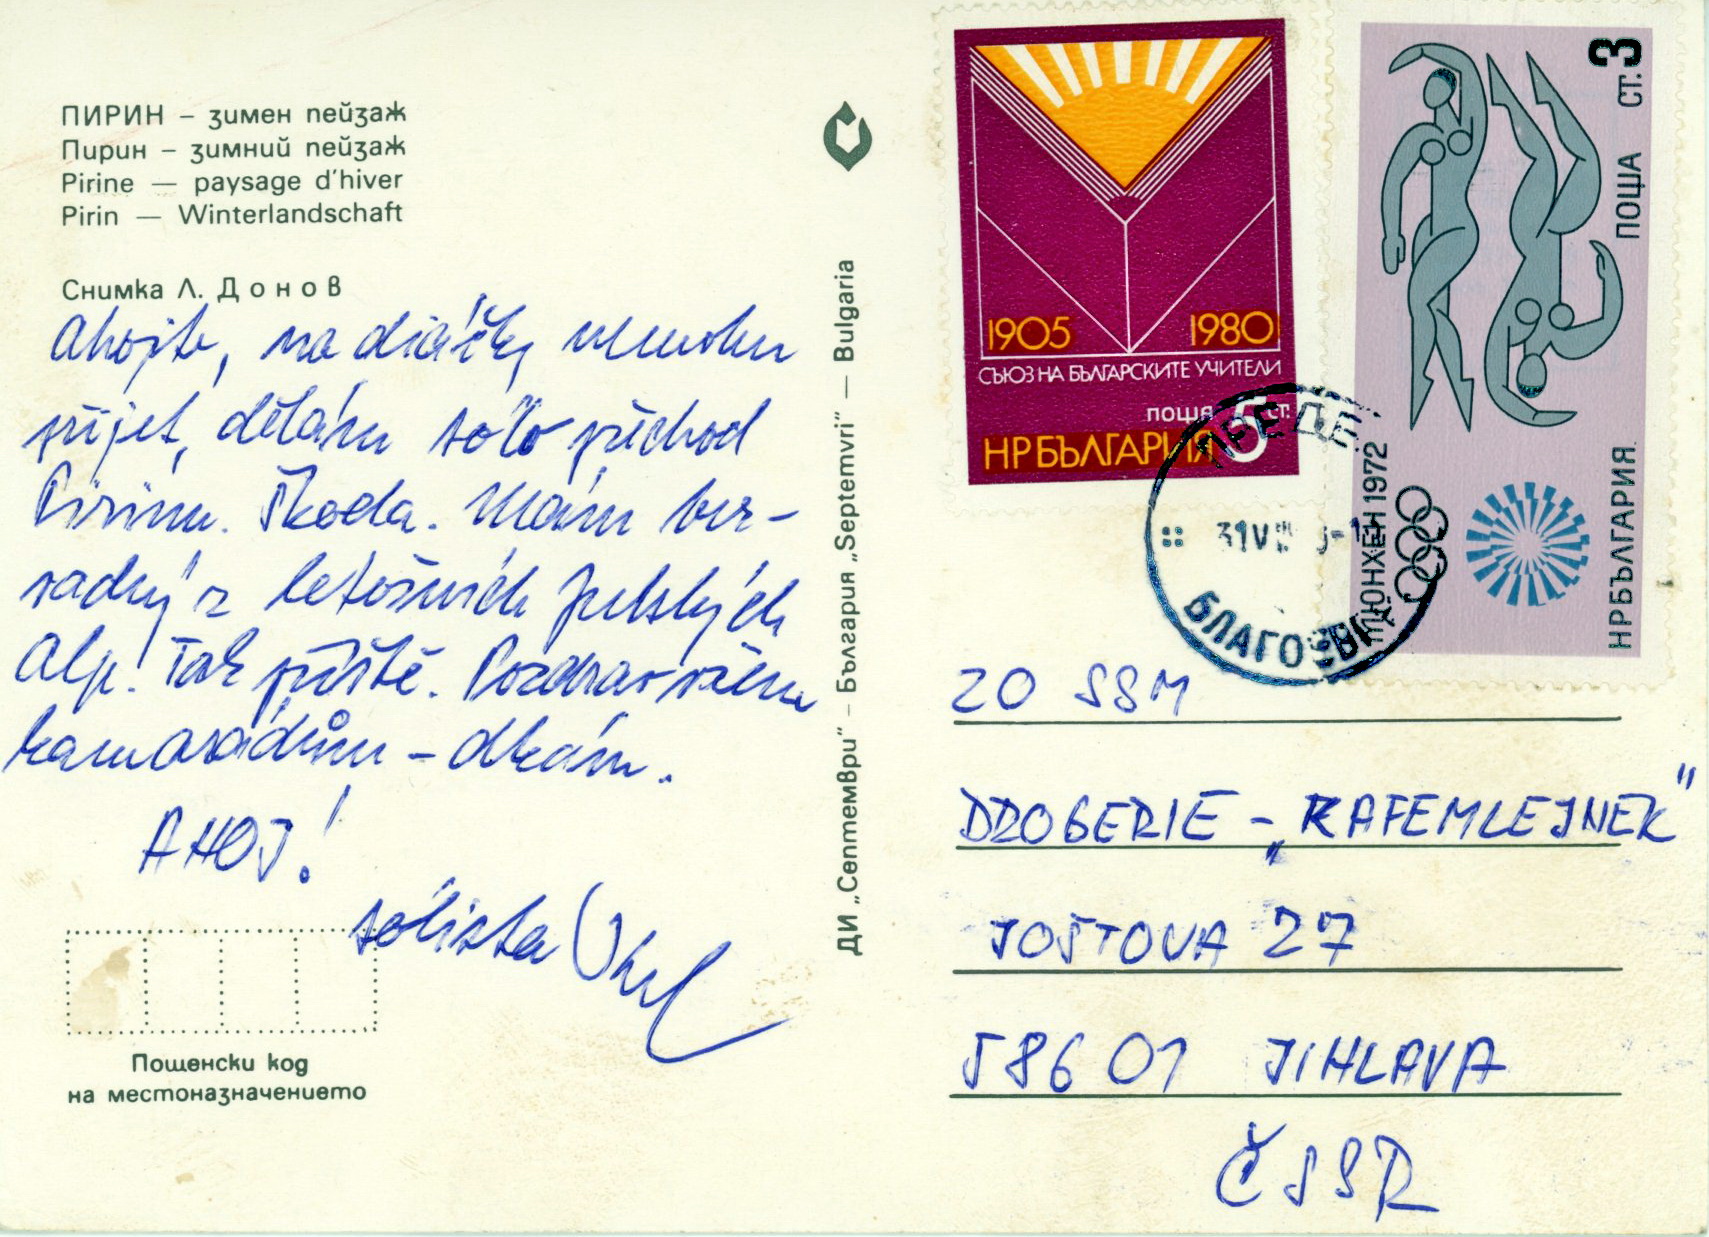 ПИРИН – зимен пейзаж
Пирин – зимний пейзаж
Pirine — paysage d'hiver
Pirin — Winterlandschaft
Снимка Л. Донов
Ahojte, na diáčky nemohu
přijet, dělám sólo přechod
Pirinu. Škoda. Mám
z letošních Julských
Alp! Tak příště. Pozdrav všem
kamarádům – dkám.
AHOJ!
sólista
Пощенски код
на местоназначението
ДИ „Септември" – България „Septemvri" — Bulgaria
1905 1980
СЪЮЗ НА БЪЛГАРСКИТЕ УЧИТЕЛИ
поща 5 ст.
НР БЪЛГАРИЯ
ПОЩА СТ. 3
МЮНХЕН 1972
НР БЪЛГАРИЯ
ПРЕДЕ
БЛАГОЕВГ
ZO SSM
DROGERIE – „KAFEMLEJNEK"
JOŠTOVA 27
586 01 JIHLAVA
ČSSR